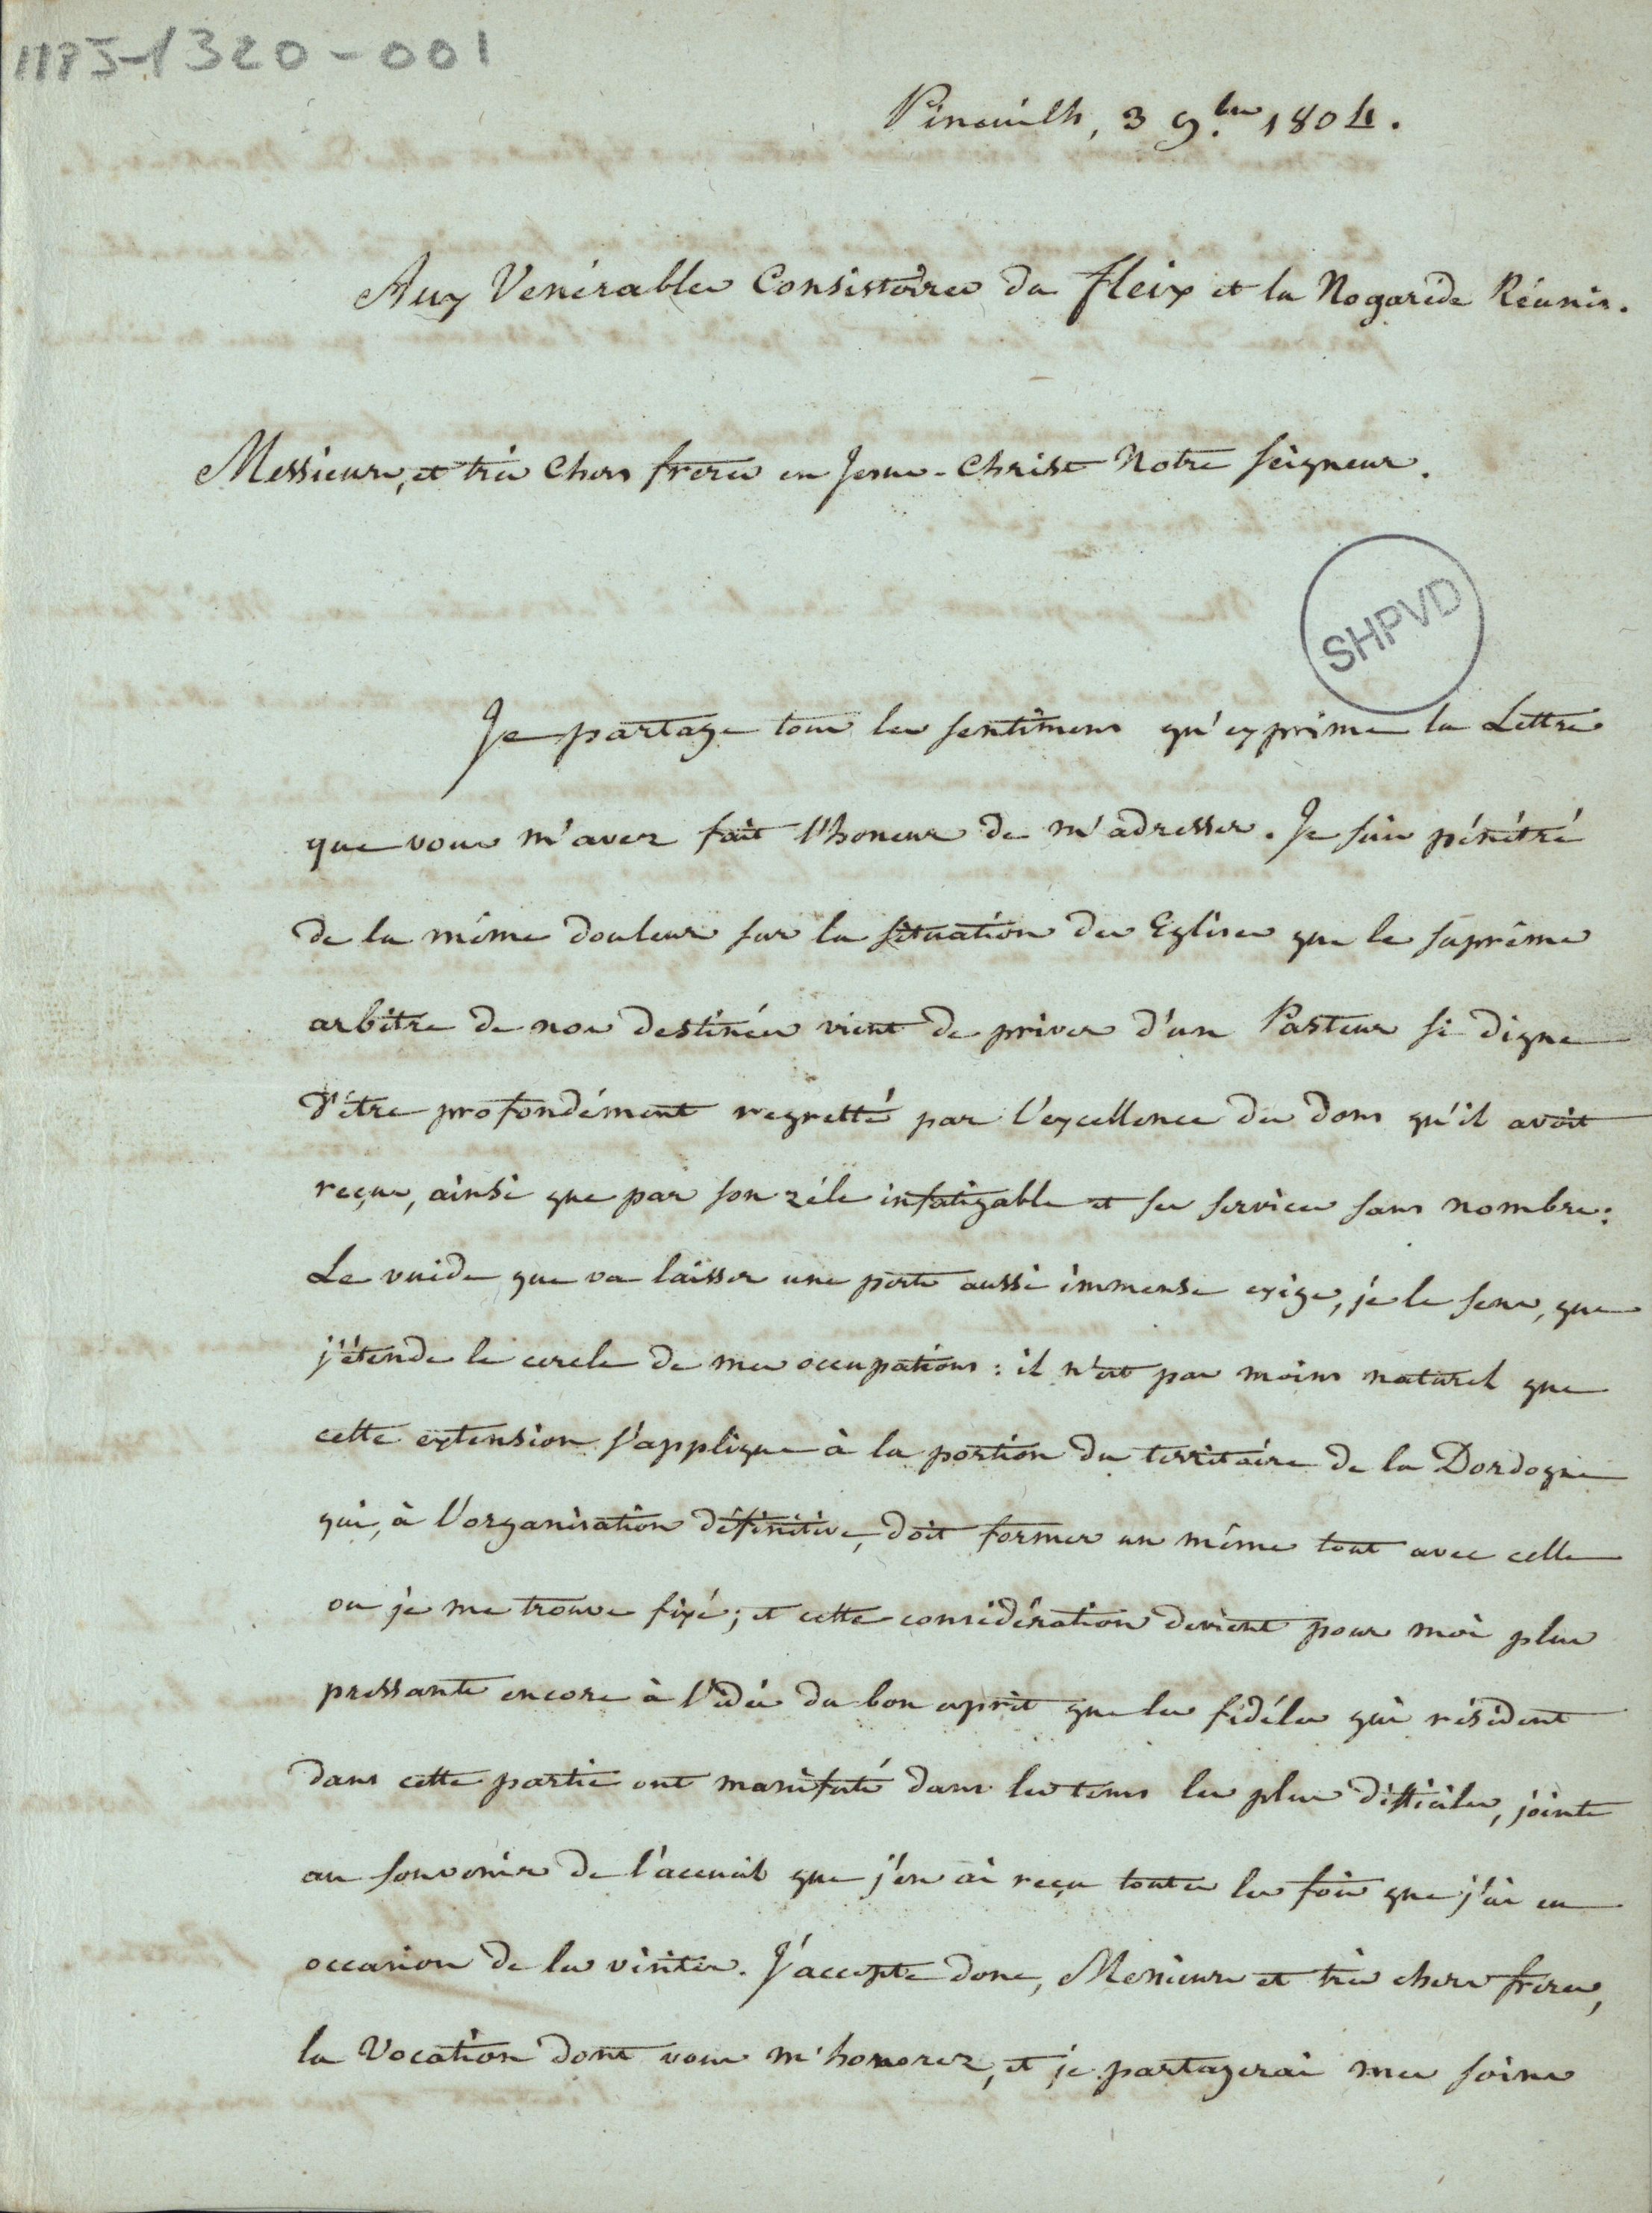 1175-1320-001
Pineuilh, 3 9.bre 1804.
Aux Venérables Consistoires du Fleix et la Nogarède Réunis.
Messieurs, et très Chers freres en Jesus-Christ Notre Seigneur.
SHPVD
Je partage tous les sentimens qu'exprime la Lettre
que vous m'avez fait l'honeur de m'adresser. Je suis pénétré
de la même douleur sur la situation des Eglises que le suprême
arbitre de nos destinées vient de priver d'un Pasteur si digne
d'être profondément regretté par l'excellence des dons qu'il avoit
reçus, ainsi que par son zéle infatigable et ses services sans nombre:
Le vuide que va laisser une perte aussi immense exige, je le sens, que
j'étende le cercle de mes occupations: il n'est pas moins naturel que
cette extension s'applique à la portion du territoire de la Dordogne
qui, à l'organisation définitive, doit former un même tout avec celle
ou je me trouve fixé; et cette considération devient pour moi plus
pressante encore à l'idée du bon esprit que les fidéles qui résident
dans cette partie ont manifesté dans les tems les plus difficiles, jointe
au souvenir de l'accueil que j'en ai reçu toutes les fois que j'ai eu
occasion de les visiter. J'accepte donc, Messieurs et très chers freres,
la Vocation dont vous m'honorez, et je partagerai mes soins